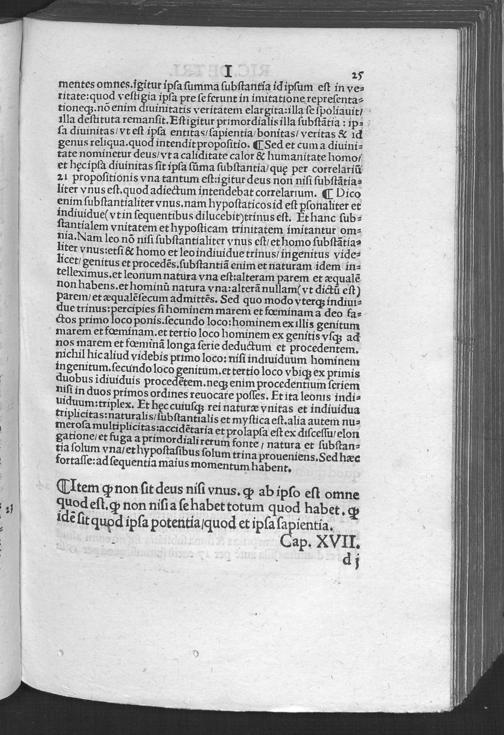 I 25
mentes omnes.igitur ipsa summa substantia id ipsum est in ve⸗
ritate:quod vestigia ipsa pre se ferunt in imitatione,representa⸗
tioneq3.nõ enim diuinitatis veritatem elargita:illa se spoliauit/
illa destituta remansit. Est igitur primordialis illa substãtia : ip⸗
sa diuinitas/vt est ipsa entitas/sapientia/bonitas/veritas & id
genus reliqua.quod intendit propositio. ¶ Sed et cum a diuini⸗
tate nominetur deus/vt a caliditate calor & humanitate homo/
et hęc ipsa diuinitas sit ipsa sũma substantia/quę per correlariũ
21 propositionis vna tantum est:igitur deus non nisi substãtia⸗
liter vnus est.quod adiectum intendebat correlarium. ¶ Dico
enim substantialiter vnus.nam hypostaticos id est ꝑsonaliter et
indiuidue(vt in sequentibus dilucebit)trinus est. Et hanc sub⸗
stantialem vnitatem et hyposticam trinitatem imitantur om⸗
nia.Nam leo nõ nisi substantialiter vnus est/et homo substãtia⸗
liter vnus:etsi & homo et leo indiuidue trinus/ingenitus vide⸗
licet/genitus et procedẽs.substantiã enim et naturam idem in⸗
telleximus.et leonum natura vna est:alteram parem et æqualẽ
non habens.et hominũ natura vna:alterã nullam(vt dictũ est)
parem/et æqualẽ secum admittẽs. Sed quo modo vterq3 indiui⸗
due trinus:percipies si hominem marem et fœminam a deo fa⸗
ctos primo loco ponis.secundo loco:hominem ex illis genitum
marem et fœminam.et tertio loco hominem ex genitis vsq3 ad
nos marem et fœminã longa serie deductum et procedentem.
nichil hic aliud videbis primo loco: nisi indiuiduum hominem
ingenitum.secundo loco genitum.et tertio loco vbiq3 ex primis
duobus idiuiduis procedẽtem.neq3 enim procedentium seriem
nisi in duos primos ordines reuocare posses. Et ita leonis indi⸗
uiduum:triplex. Et hęc cuiusq3 rei naturæ vnitas et indiuidua
triplicitas:naturalis/substantialis et mystica est.alia autem nu⸗
merosa multiplicitas:accidẽtaria et prolapsa est ex discessu/elon
gatione/et fuga a primordiali rerum fonte / natura et substan⸗
tia solum vna/et hypostasibus solum trina proueniens.Sed hæc
fortasse:ad sequentia maius momentum habent.
¶Item ꝙ non sit deus nisi vnus. ꝙ ab ipso est omne
quod est.ꝙ non nisi a se habet totum quod habet. ꝙ
idẽ sit quod ipsa potentia/quod et ipsa sapientia.
Cap. XVII.
d j